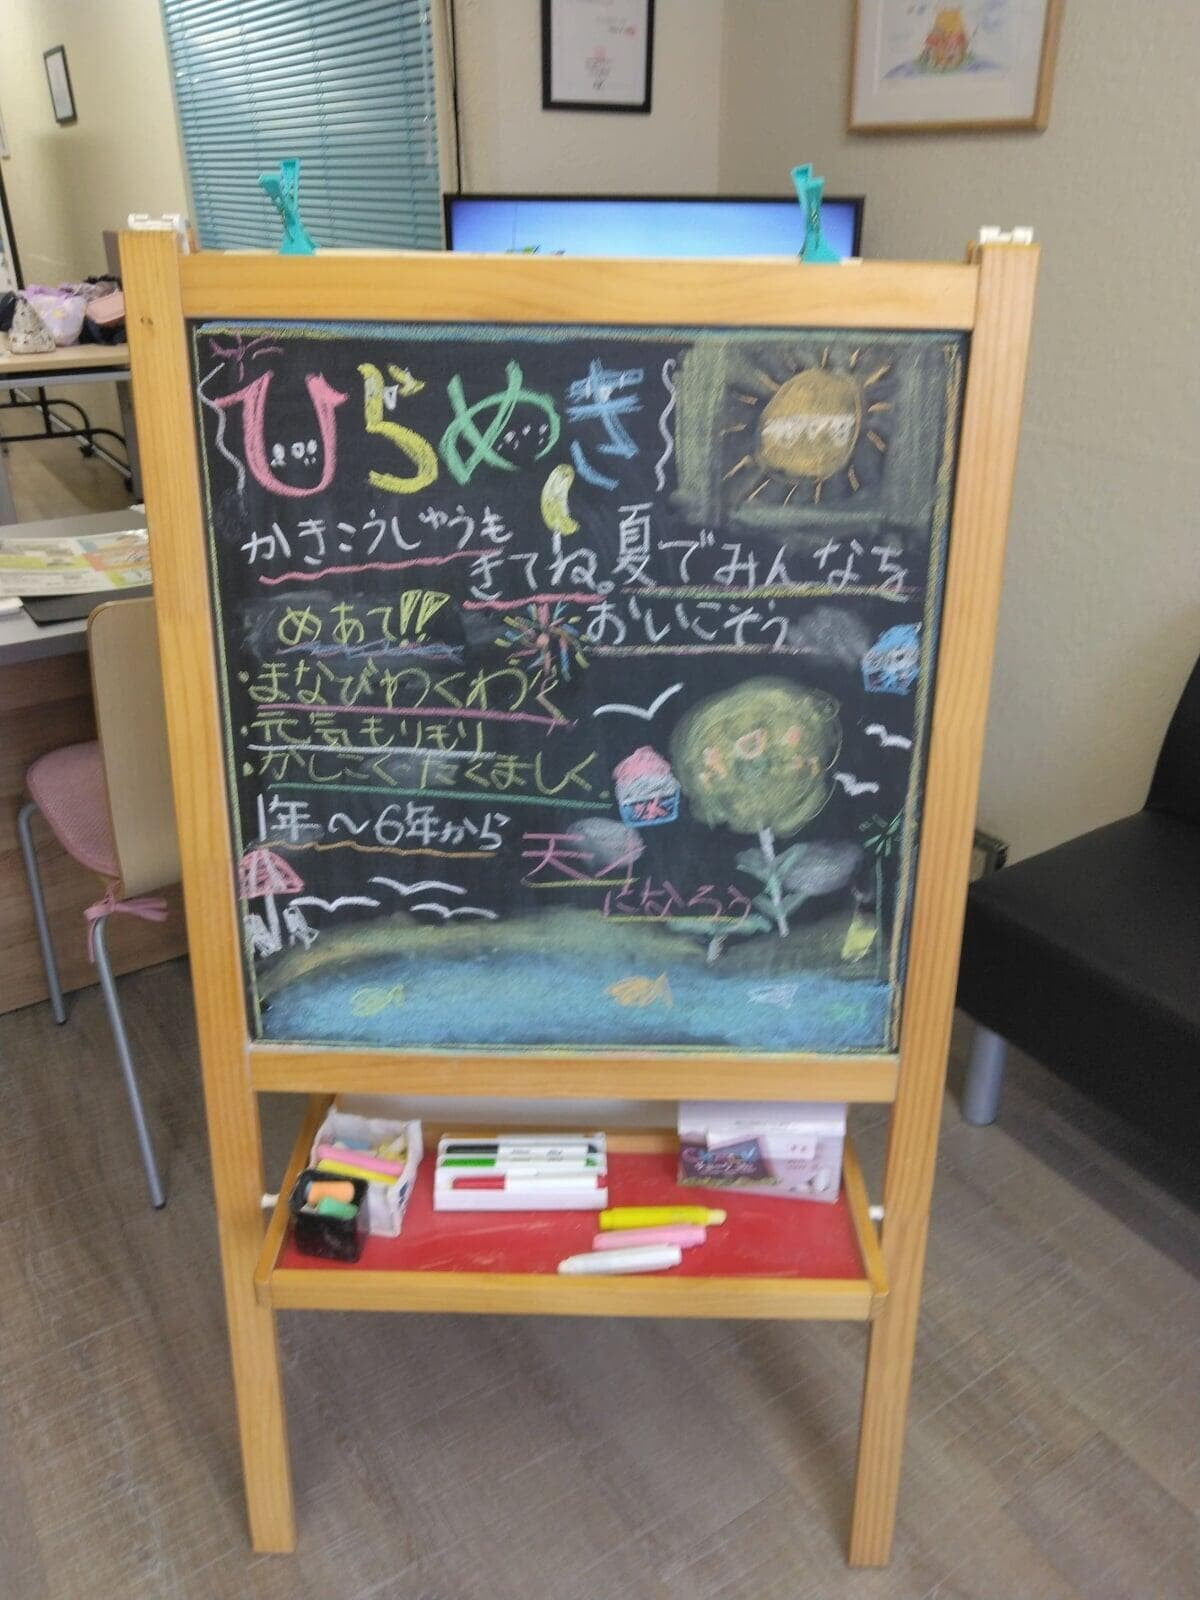 ひらめき
かきこうしゅうも
きてね。
夏でみんなを
おいこそう
めあて!!
・まなびわくわく
・元気もりもり
・かしこくたくましく
1年〜6年から
天才
になろう
氷